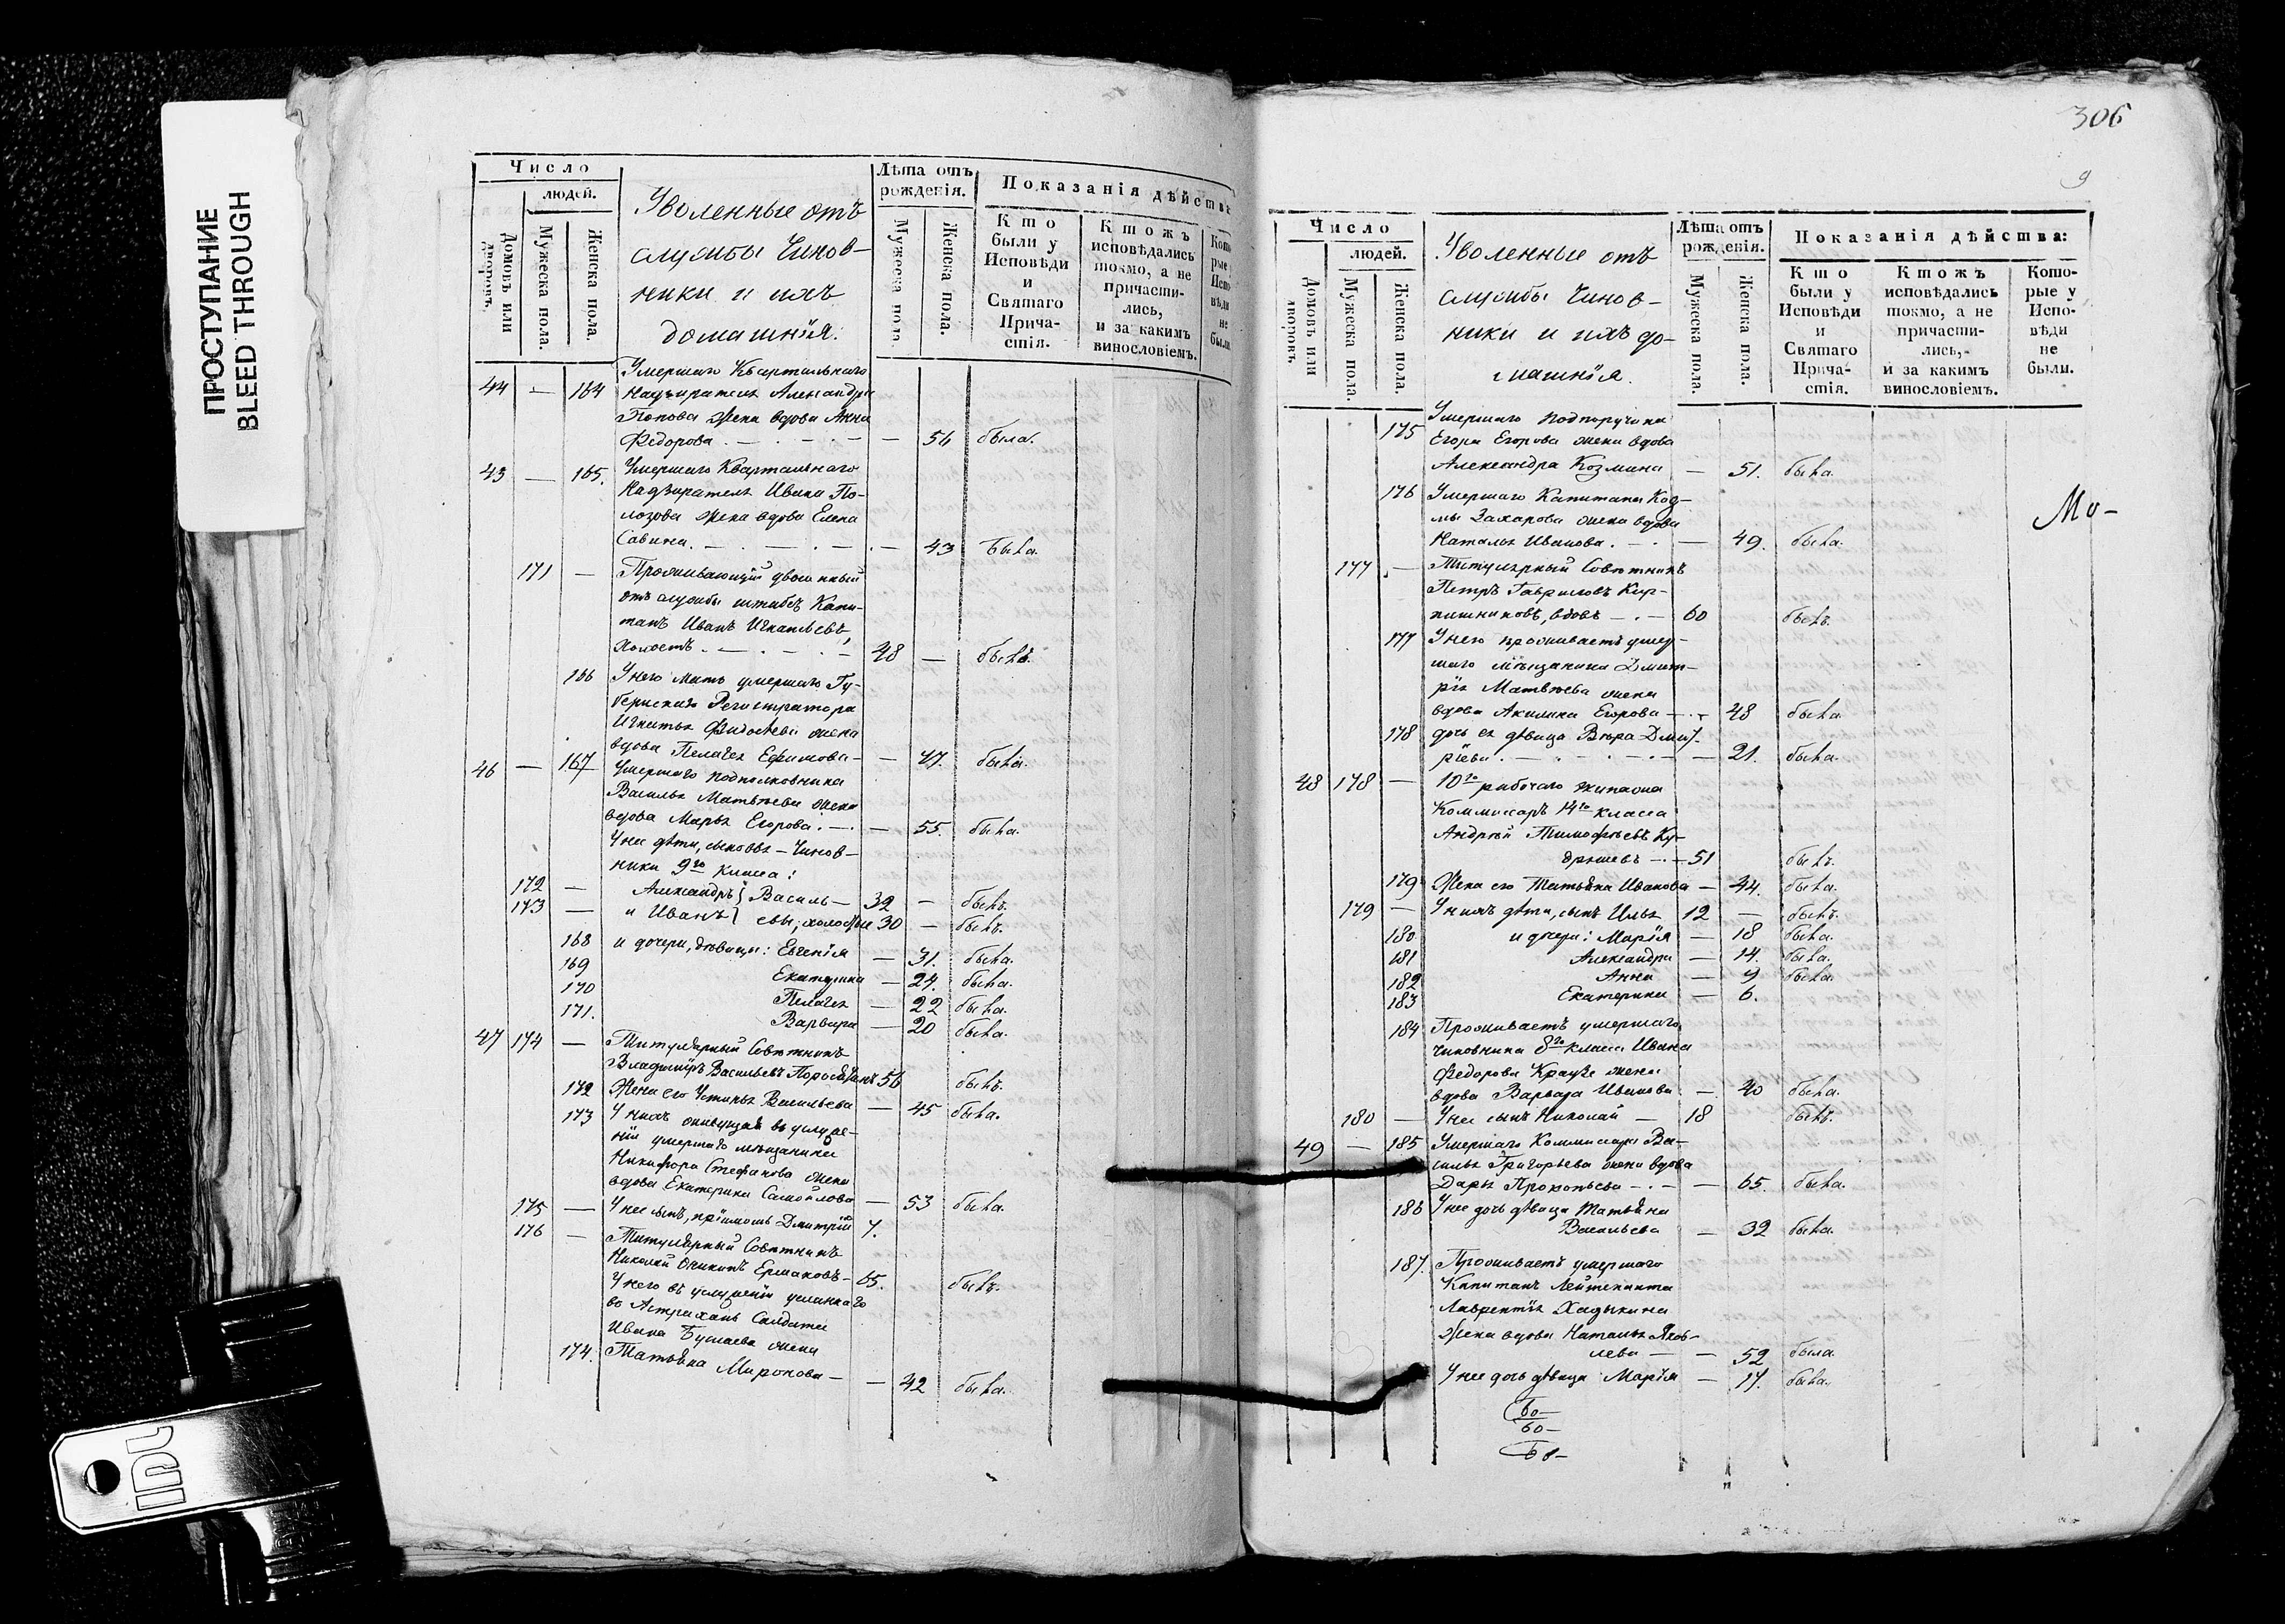 ПРОСТУПАНИЕ
BLEED THROUGH
Число
людей.
Домовъ или дворовъ.
Мужеска пола.
Женска пола.
Уволенные отъ
службы Чинов-
ники и ихъ
домашнія:
Лѣта отъ рожденія.
Мужеска пола
Женска пола.
Показанія дѣйств
Кто были у Исповѣди и Святаго Прича-стія.
Ктожъ исповѣдались токмо, а не причасти-лись, и за какимъ винословіемъ.
Кото рые Испо вѣди не были
44 — 164 Умершаго Квартальнаго
Надзирателя Александра
Попова жена вдова Анна
Федорова — 56 была.
43 — 165. Умершаго Квартальнаго
Надзирателя Ивана По-
лозова жена вдова Елена
Савина — 43 была.
171 — Проживающій уволенный
отъ службы штабсъ Капи-
танъ Иванъ Игнатьевъ,
холостъ 48 — былъ.
166 У него мать умершаго Гу-
бернскаго Регистратора
Игнатья Федосѣева жена
вдова Пелагея Ефимова — 77. была.
46 — 167 Умершаго подполковника
Василья Матвѣева жена
вдова Марья Егорова — 55. была.
У нее дѣти, сыновья – Чинов-
ники 9го класса:
172 — Александръ } Василь— 32 — былъ.
173 — и Иванъ } евы, холостые 30 — былъ.
168 и дочери, дѣвицы: Евгенія — 31. была.
169 Екатерина — 24. была.
170 Пелагея — 22 была.
171. Варвара — 20 была.
47 174 — Титулярный Совѣтникъ
Владиміръ Васильевъ 56 былъ.
172 Жена его Устинья Васильева — 45 была.
173 У нихъ живущая въ услуже-
ніи умершаго мѣщанина
Никифора Стефанова жена
вдова Екатерина Самойлова — 53 была.
175 — У нее сынъ, пріимышъ Дмитрій 7.
176 — Титулярный Совѣтникъ
Николай Ермаковъ — 65. былъ.
У него въ услуженіи
въ Астрахань Солдата
Ивана жена
174. Татьяна Миронова — — 42 была.
306
9
Число
людей.
Домовъ или дворовъ.
Мужеска пола.
Женска пола.
Уволенные отъ
службы Чинов-
ники и ихъ до-
машнія.
Лѣта отъ рожденія.
Мужеска пола.
Женска пола.
Показанія дѣйства:
Кто были у Исповѣди и Святаго Прича-стія.
Ктожъ исповѣдались токмо, а не причасти-лись, и за какимъ винословіемъ.
Кото-рые у Испо-вѣди не были.
175 Умершаго подпоручика
Егора Егорова жена вдова
Александра Козмина — 51. была.
176 Умершаго Капитана Коз-
мы Захарова жена вдова
Наталья Иванова — 49. была.
Мо-
177 — Титулярный Совѣтникъ
Петръ Гавриловъ Кир-
пишниковъ, вдовъ — 60 былъ.
177 У него проживаетъ умер-
шаго мѣщанина Дмит-
рія Матвѣева жена
вдова Акилина Егорова — 48 была.
178 дочь ея дѣвица Вѣра Дмит-
ріева — 21. была.
48 178 — 10го рабочаго экипажа
Коммиссаръ 14го класса
Андрей Тимофѣевъ Ку-
дряшевъ — 51 былъ.
179 Жена его Татьяна Иванова — 44. была.
179 — У нихъ дѣти, сынъ Илья 12 — былъ.
180 и дочери: Марія — 18 была.
181 Александра — 14. была.
182 Анна — 9 была.
183 Екатерина — 6.
184 Проживаетъ умершаго
чиновника 8го класса Ивана
Федорова Краузе жена
вдова Варвара Иванова — 40 была.
180 — У нее сынъ Николай — 18 былъ.
49 — 185 Умершаго Коммиссара Ва-
силья Григорьева жена вдова
Дарья Прокопьева — 65. была.
186 У нее дочь дѣвица Татьяна
Васильева — 32 была.
187. Проживаетъ умершаго
Капитанъ Лейтенанта
Лаврентія Хадыкина
жена вдова Наталья Яков-
лева — — 52 была
У нее дочь дѣвица Марія — 17. была.
60—
60—